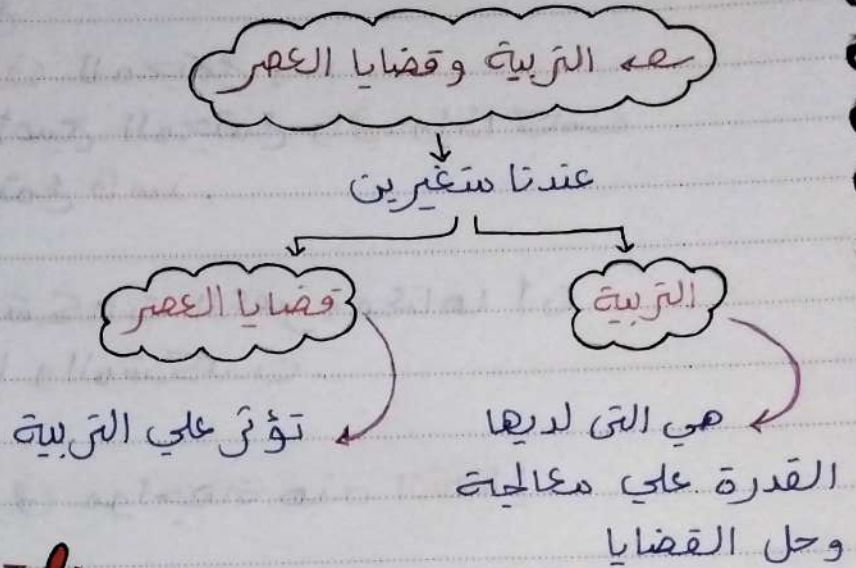 التربية وقضايا العصر
عندنا متغيرين
التربية
قضايا العصر
هي التى لديها
القدرة علي معالجة
وحل القضايا
تؤثر علي التربية